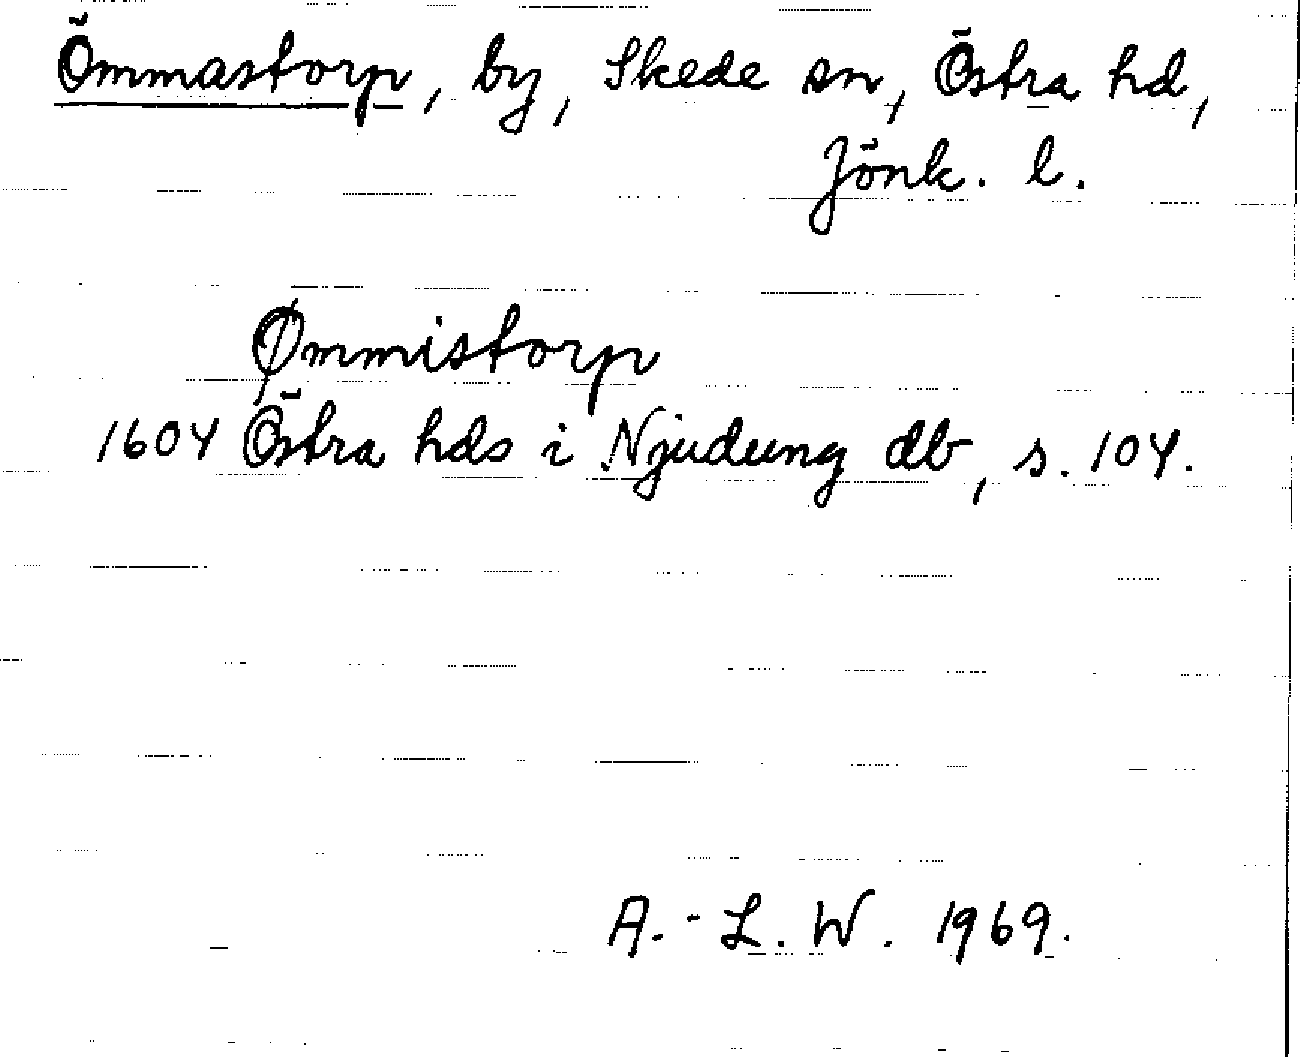 Ömmastorp, by, Skede sn, Östra hd,
Jönk. l.
Ømmistorp
1604 Östra hds i Njudung db, s. 104.
A.-L. W. 1969.